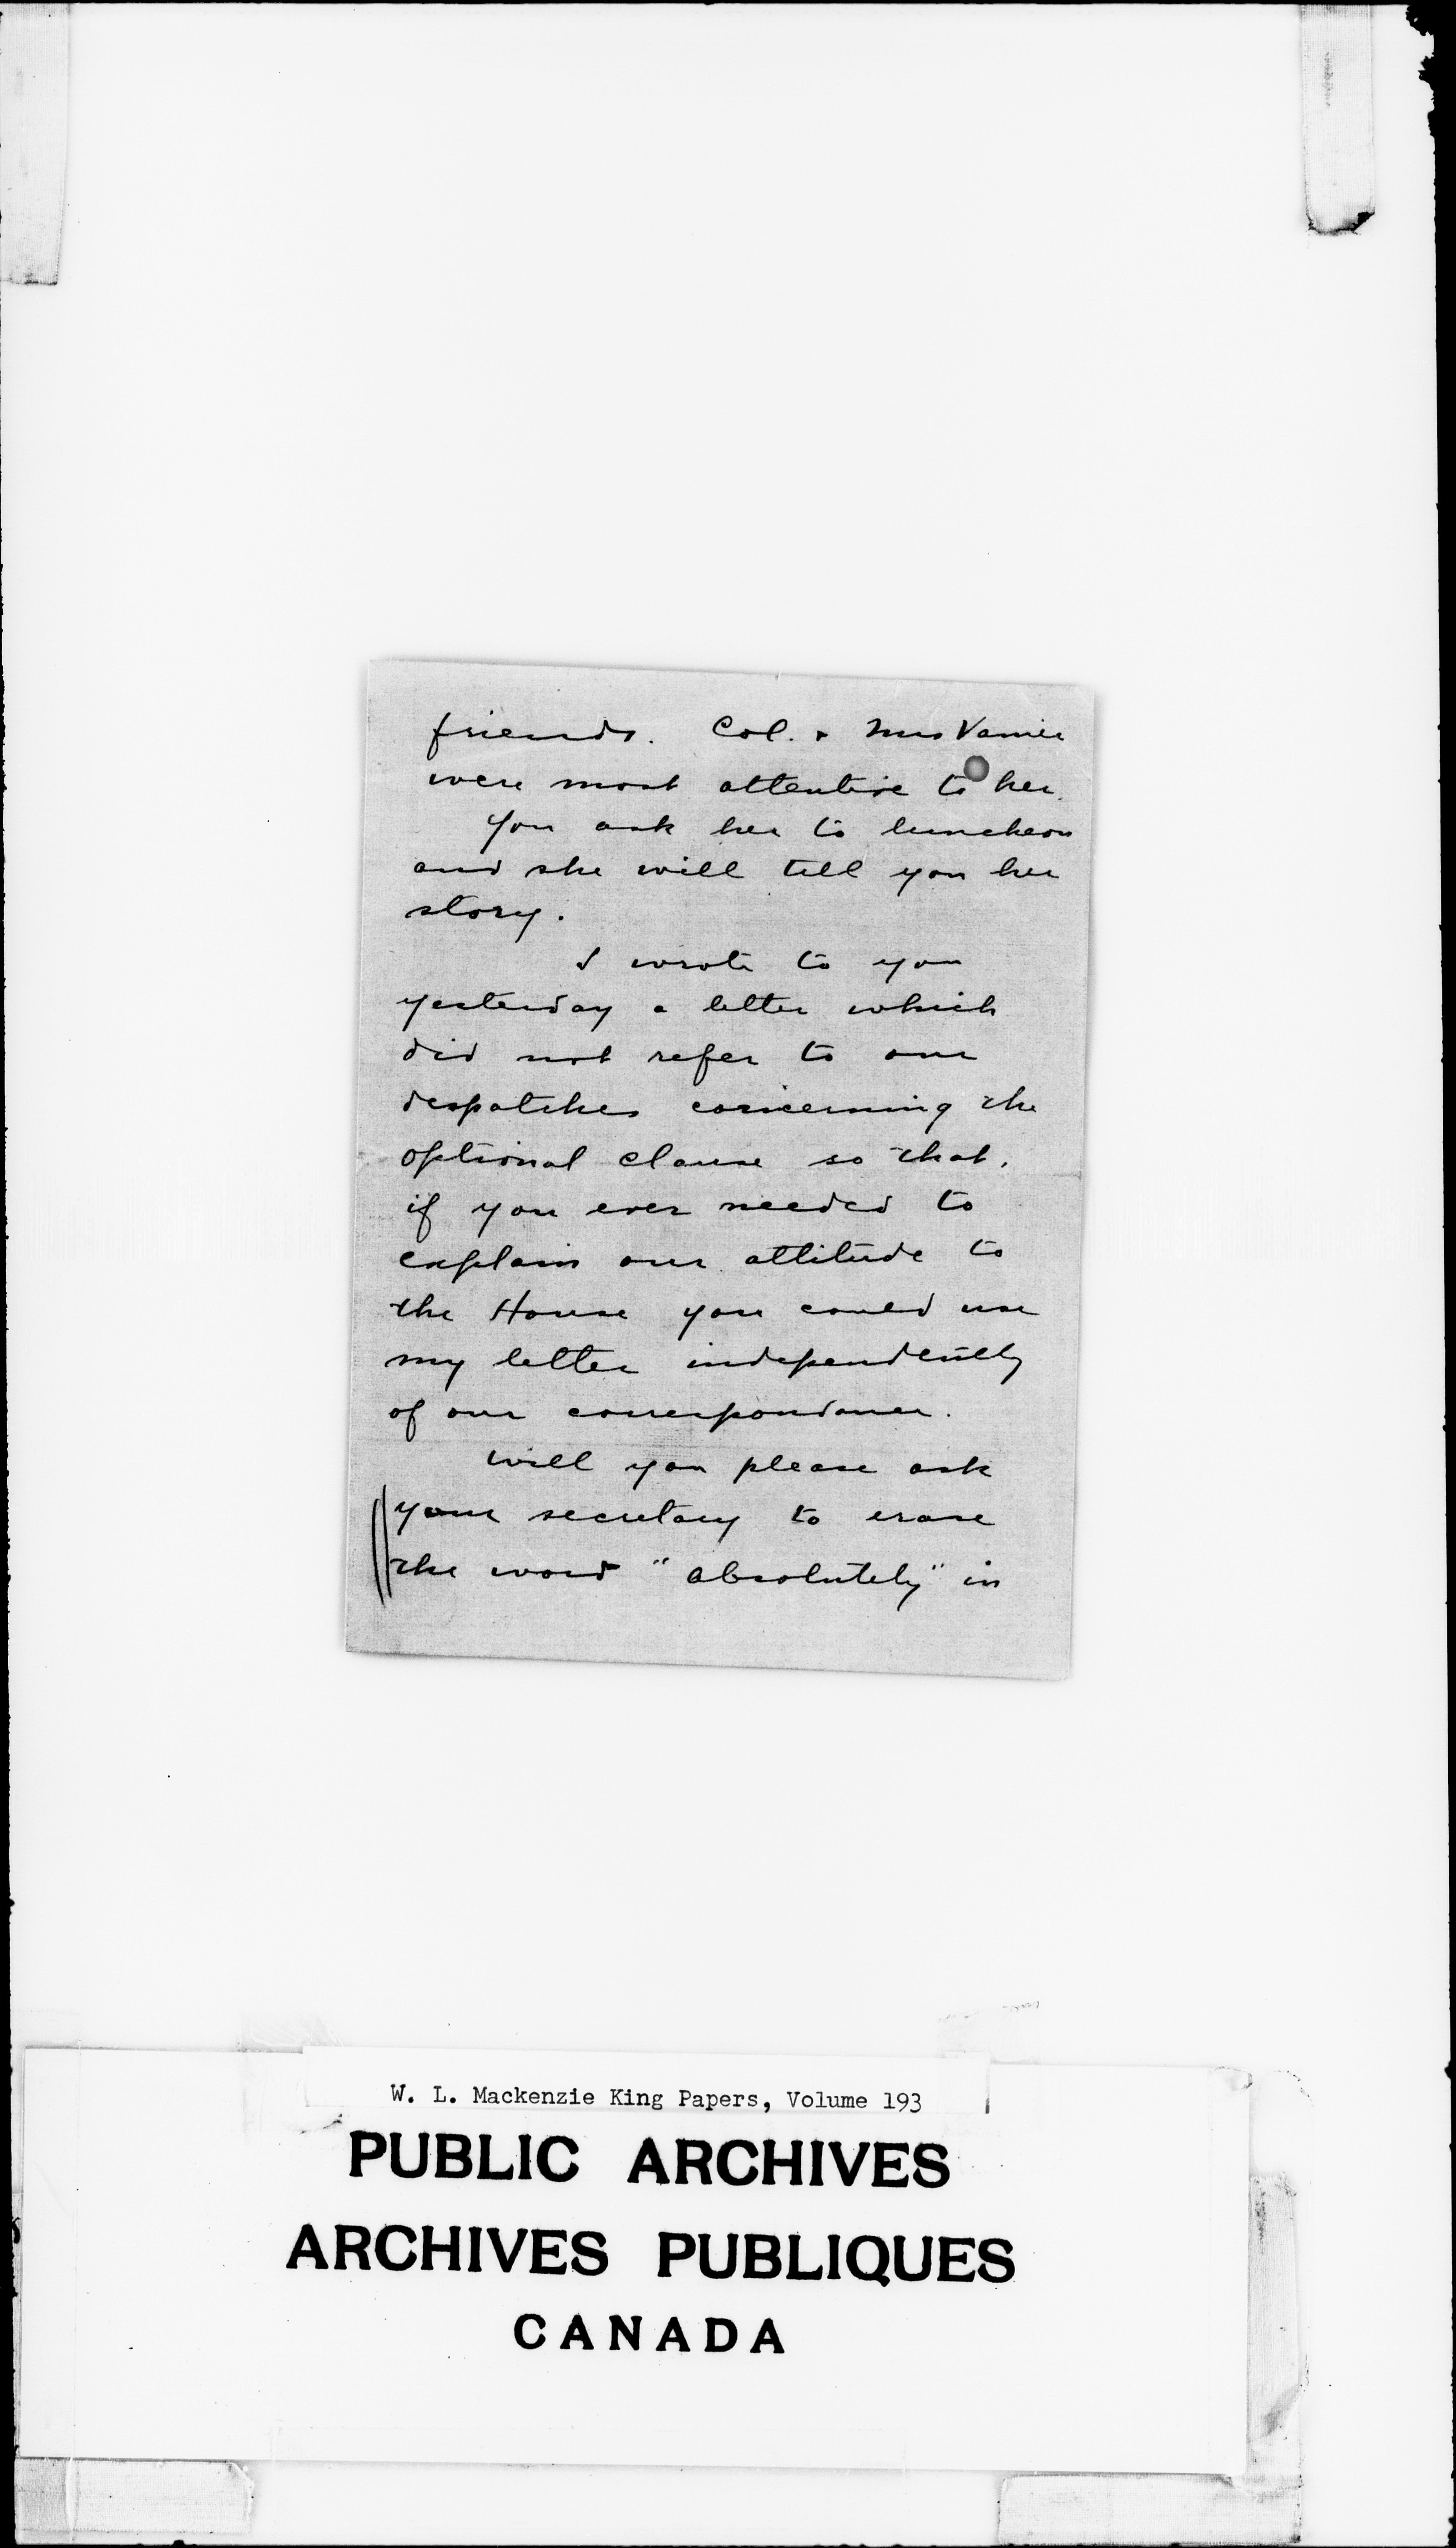 friends. Col. & Mrs Vanier
were most attentive to her.
You ask her to luncheon
and she will tell you her
story.
I wrote to you
yesterday a letter which
did not refer to our
despatches concerning the
optional clause so that,
if you ever needed to
explain our attitude to
the House you could use
my letter independently
of our correspondance.
Will you please ask
your secretary to erase
the word "absolutely" in
W. L. Mackenzie King Papers, Volume 193
PUBLIC ARCHIVES
ARCHIVES PUBLIQUES
CANADA